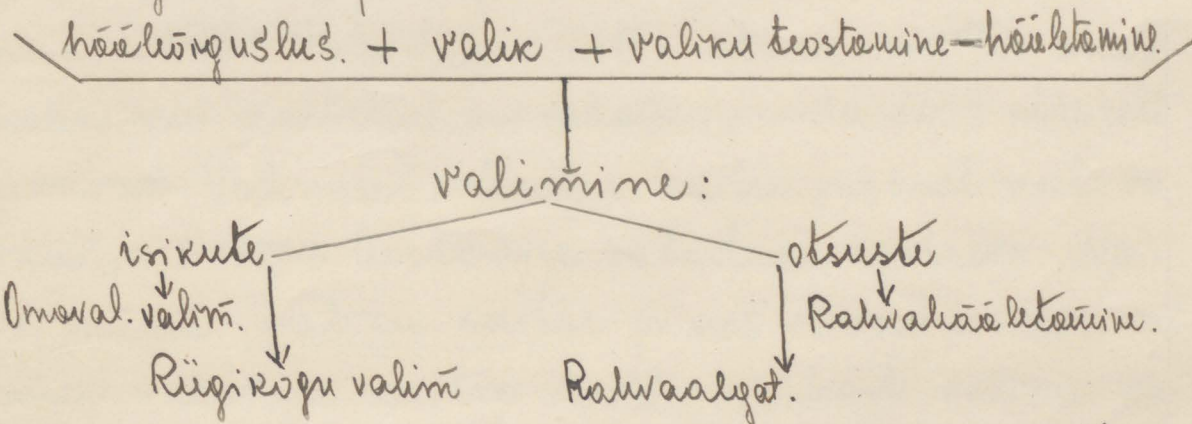 hääleõiguslus. + valik + valiku teostamine – hääletamine.
valimine:
isikute otsuste
Omaval. valim. Rahvahääletamine.
Riigikogu valim Rahvaalgat.